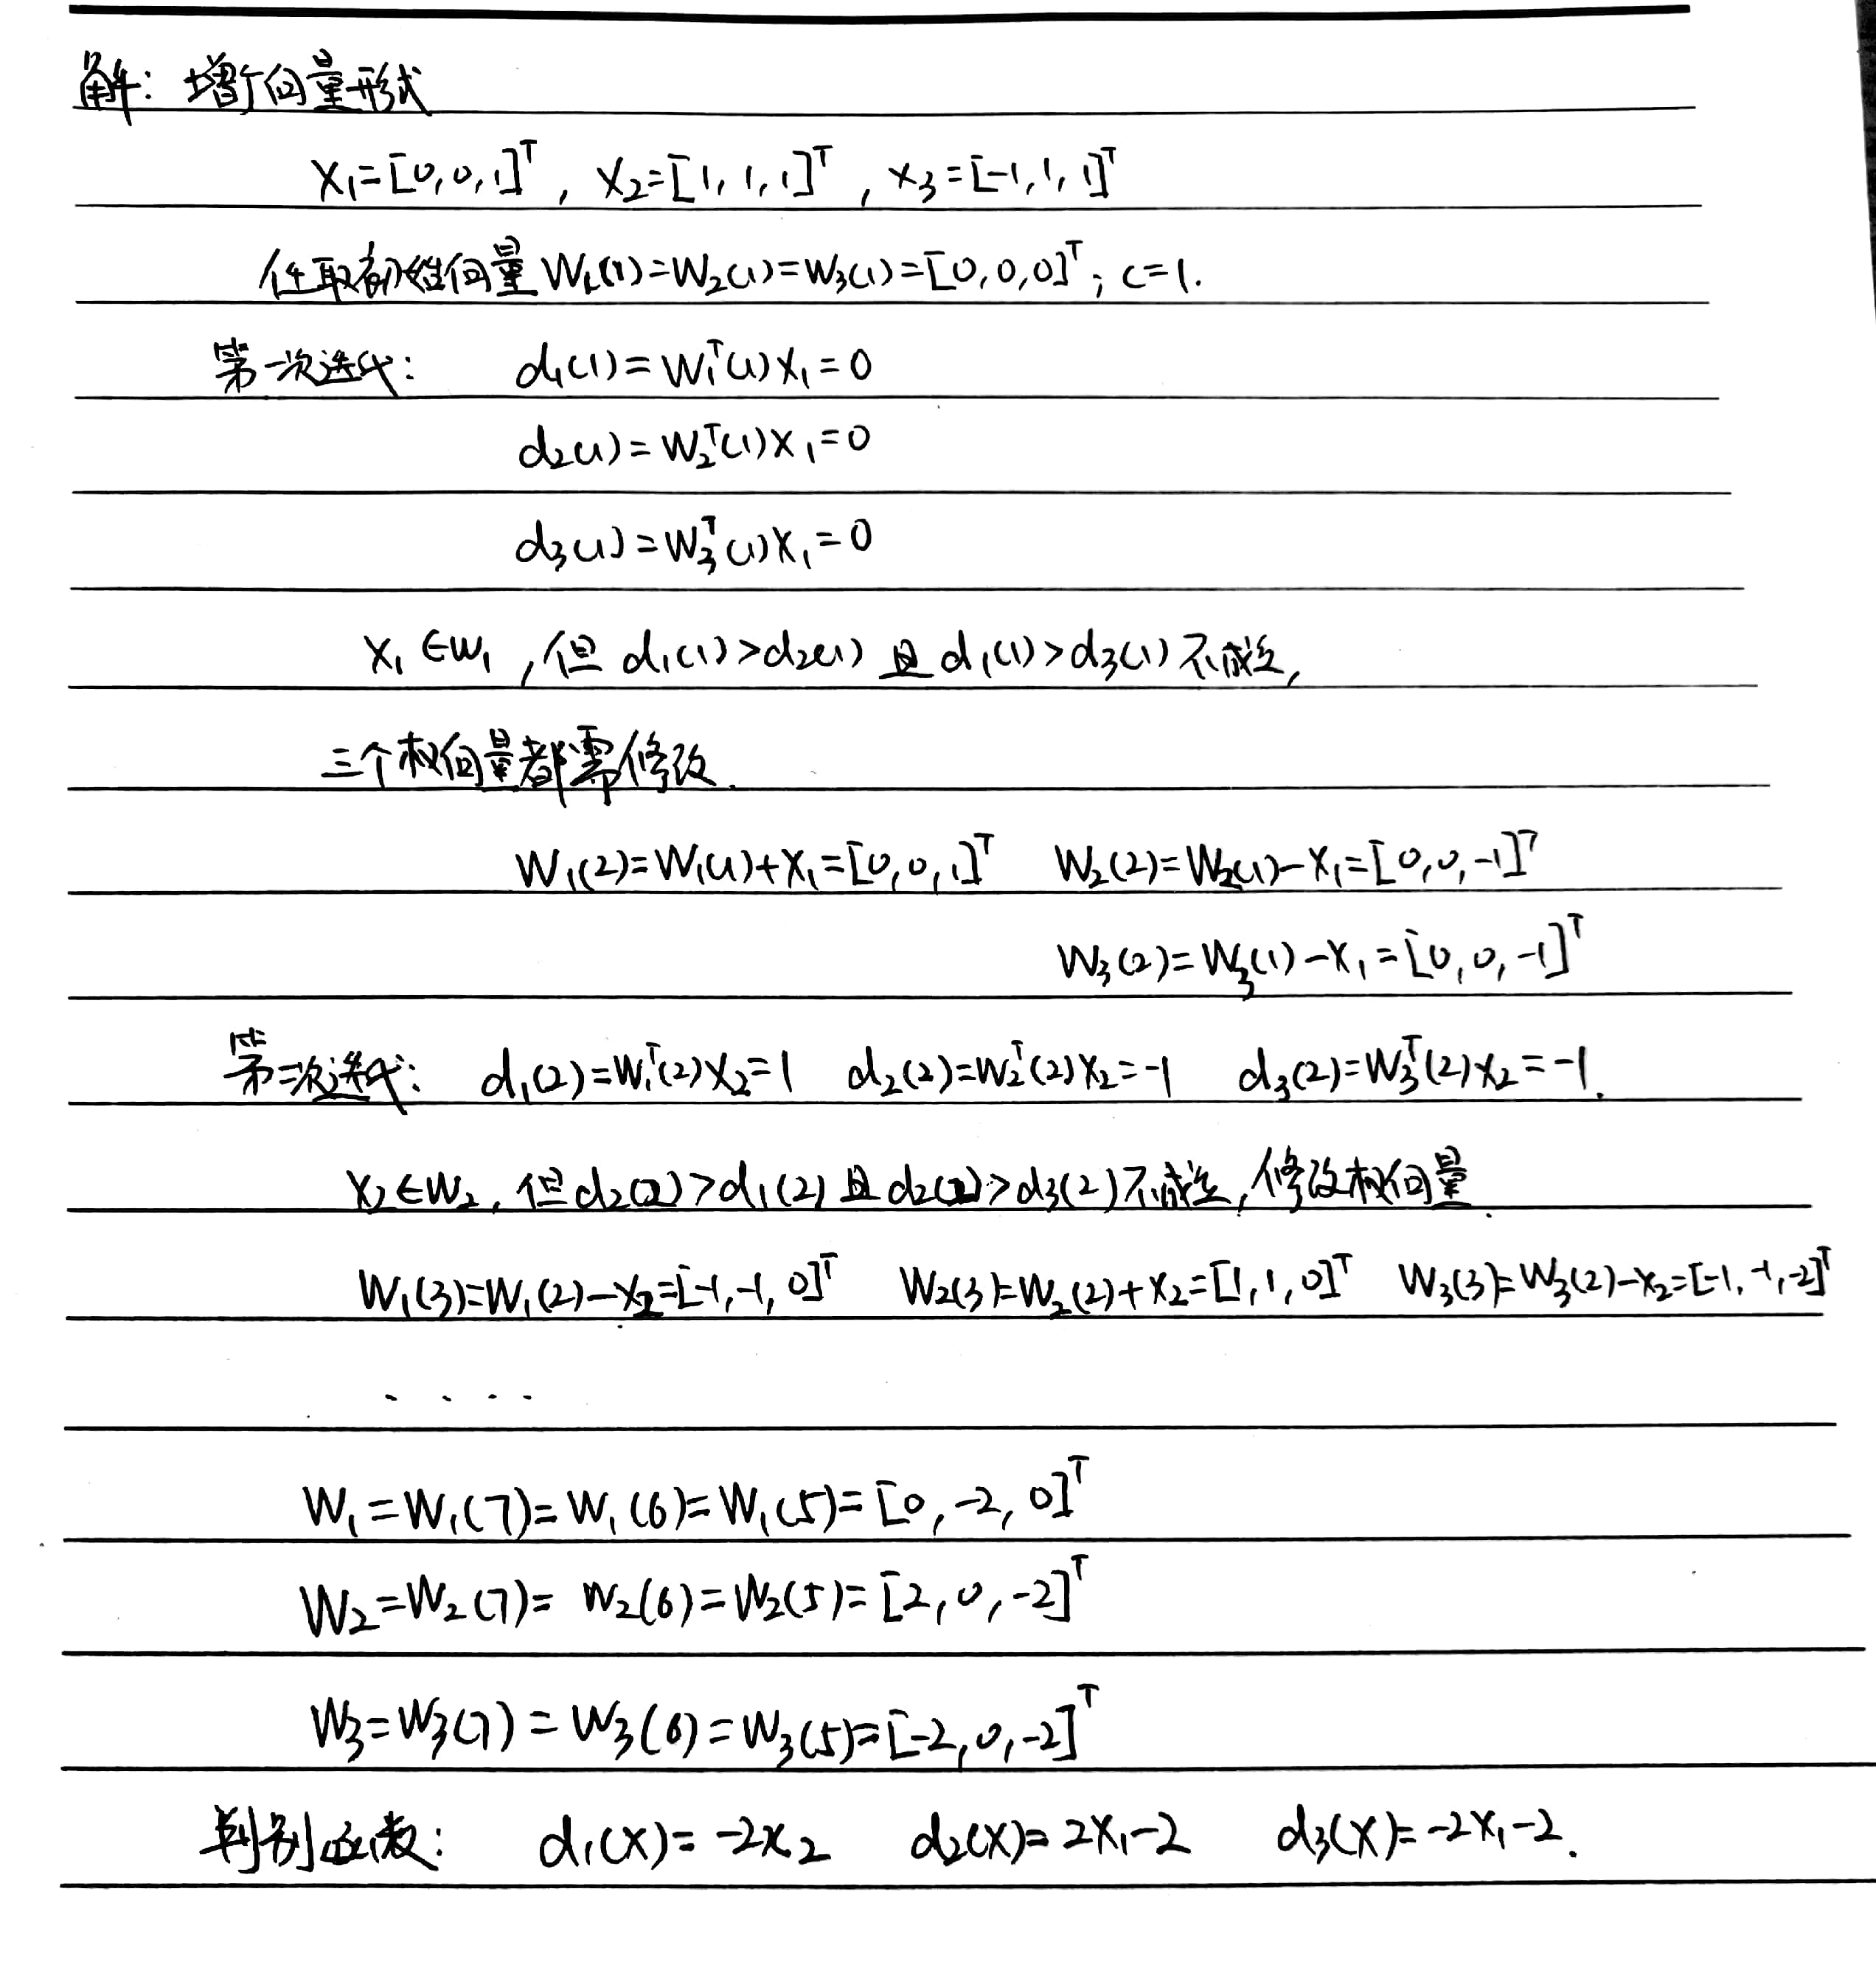 解：增广向量形式
X₁=[0,0,1]ᵀ, X₂=[1,1,1]ᵀ, X₃=[-1,1,1]ᵀ
任取初始向量W₁(1)=W₂(1)=W₃(1)=[0,0,0]ᵀ; C=1.
第一次迭代: d₁(1)=W₁ᵀ(1)X₁=0
d₂(1)=W₂ᵀ(1)X₁=0
d₃(1)=W₃ᵀ(1)X₁=0
X₁∈W₁,但d₁(1)>d₂(1)且d₁(1)>d₃(1)不成立,
三个权向量都需修改.
W₁(2)=W₁(1)+X₁=[0,0,1]ᵀ W₂(2)=W₂(1)-X₁=[0,0,-1]ᵀ
W₃(2)=W₃(1)-X₁=[0,0,-1]ᵀ
第二次迭代: d₁(2)=W₁ᵀ(2)X₂=1 d₂(2)=W₂ᵀ(2)X₂=-1 d₃(2)=W₃ᵀ(2)X₂=-1.
X₂∈W₂,但d₂(2)>d₁(2)且d₂(2)>d₃(2)不成立,修改权向量
W₁(3)=W₁(2)-X₂=[-1,-1,0]ᵀ W₂(3)=W₂(2)+X₂=[1,1,0]ᵀ W₃(3)=W₃(2)-X₂=[-1,-1,-2]ᵀ
....
W₁=W₁(7)=W₁(6)=W₁(5)=[0,-2,0]ᵀ
W₂=W₂(7)=W₂(6)=W₂(5)=[2,0,-2]ᵀ
W₃=W₃(7)=W₃(6)=W₃(5)=[-2,0,-2]ᵀ
判别函数: d₁(X)=-2X₂ d₂(X)=2X₁-2 d₃(X)=-2X₁-2.